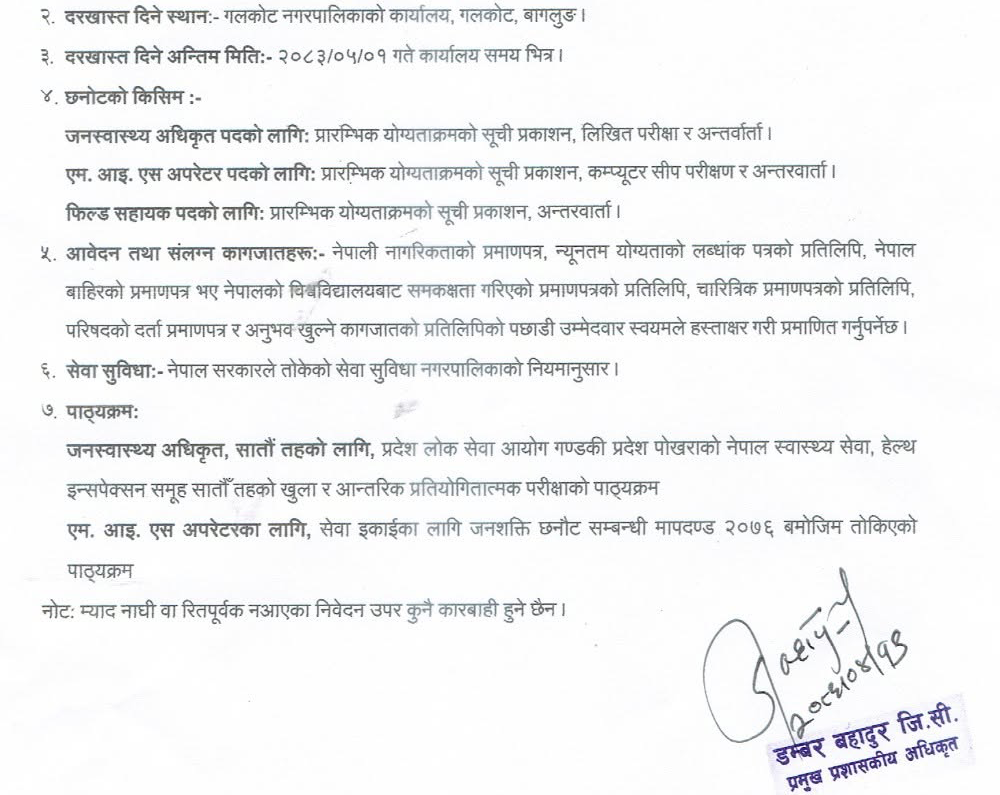 २. दरखास्त दिने स्थान:- गलकोट नगरपालिकाको कार्यालय, गलकोट, बागलुङ।
३. दरखास्त दिने अन्तिम मिति:- २०८३/०५/०१ गते कार्यालय समय भित्र।
४. छनोटको किसिम :-
जनस्वास्थ्य अधिकृत पदको लागि: प्रारम्भिक योग्यताक्रमको सूची प्रकाशन, लिखित परीक्षा र अन्तर्वार्ता।
एम. आइ. एस अपरेटर पदको लागि: प्रारम्भिक योग्यताक्रमको सूची प्रकाशन, कम्प्यूटर सीप परीक्षण र अन्तरवार्ता।
फिल्ड सहायक पदको लागि: प्रारम्भिक योग्यताक्रमको सूची प्रकाशन, अन्तरवार्ता।
५. आवेदन तथा संलग्न कागजातहरू:- नेपाली नागरिकताको प्रमाणपत्र, न्यूनतम योग्यताको लब्धांक पत्रको प्रतिलिपि, नेपाल
बाहिरको प्रमाणपत्र भए नेपालको विश्वविद्यालयबाट समकक्षता गरिएको प्रमाणपत्रको प्रतिलिपि, चारित्रिक प्रमाणपत्रको प्रतिलिपि,
परिषदको दर्ता प्रमाणपत्र र अनुभव खुल्ने कागजातको प्रतिलिपिको पछाडी उम्मेदवार स्वयमले हस्ताक्षर गरी प्रमाणित गर्नुपर्नेछ।
६. सेवा सुविधा:- नेपाल सरकारले तोकेको सेवा सुविधा नगरपालिकाको नियमानुसार।
७. पाठ्यक्रम:
जनस्वास्थ्य अधिकृत, सातौं तहको लागि, प्रदेश लोक सेवा आयोग गण्डकी प्रदेश पोखराको नेपाल स्वास्थ्य सेवा, हेल्थ
इन्सपेक्सन समूह सातौँ तहको खुला र आन्तरिक प्रतियोगितात्मक परीक्षाको पाठ्यक्रम
एम. आइ. एस अपरेटरका लागि, सेवा इकाईका लागि जनशक्ति छनौट सम्बन्धी मापदण्ड २०७६ बमोजिम तोकिएको
पाठ्यक्रम
नोट: म्याद नाघी वा रितपूर्वक नआएका निवेदन उपर कुनै कारबाही हुने छैन।
डम्बर बहादुर जि.सी.
प्रमुख प्रशासकीय अधिकृत